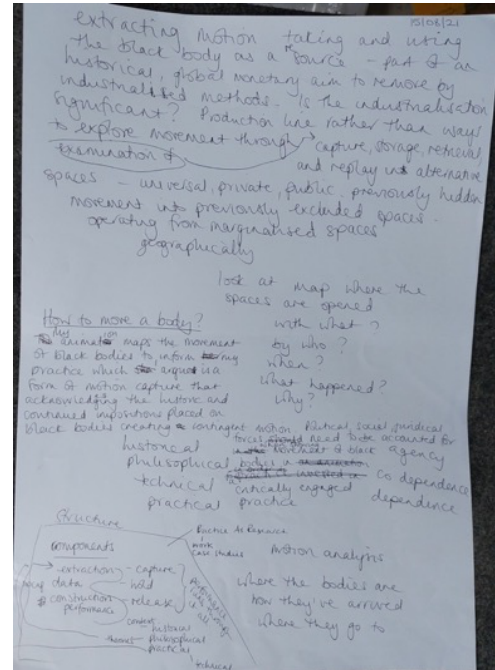 15/08/21
extracting motion taking and using
the black body as a source - part of an
historical, global monetary aim to remove by
industrialised methods. Is the industrialisation
significant? Production line rather than ways
to explore movement through
examination of
capture, storage, retrieval,
and replay into alternative
spaces - universal, private, public. previously hidden
movement into previously excluded spaces -
operating from marginalised spaces
geographically
look at map where the
spaces are opened
with what?
by who?
when?
what happened?
why?
How to move a body?
My animation maps the movement
of black bodies to inform my
practice which argues is a
form of motion capture that
acknowledging the historic and
continued impositions placed on
black bodies creating a contingent motion. Political, social, juridical
forces should need to be accounted for
movement of black agency
historical
philosophical bodies in
technical critically engaged
practical practice
co dependence
dependence
Structure
components
extraction - capture
data - hold
construction - release
performance
context historical
theoret philosophical
practical
technical
Practice As Research
work
case studies
motion analysis
where the bodies are
how they've arrived
where they go to